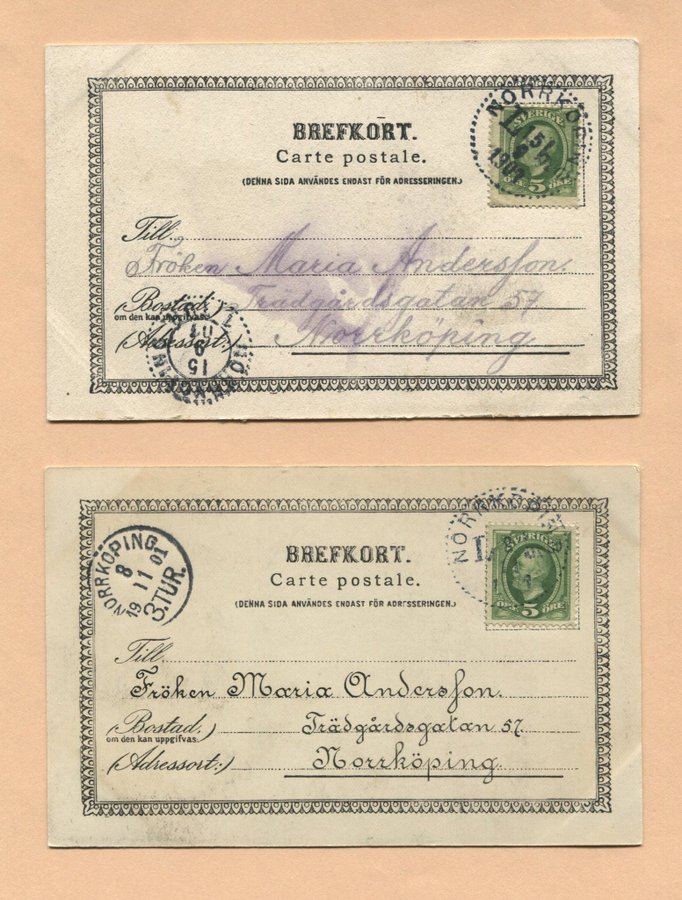 NORRKÖPING
SVERIGE
L
15
9
1901
5 ÖRE
BREFKORT.
Carte postale.
(DENNA SIDA ANVÄNDES ENDAST FÖR ADRESSERINGEN.)
Till
Fröken Maria Andersson.
(Bostad:)
om den kan uppgifvas
Trädgårdsgatan 57
(Adressort:)
Norrköping
15
9
01
NORRKÖPING
NORRKÖPING
8
11
19 01
3.TUR.
NORRKÖPING
SVERIGE
L
5 ÖRE
BREFKORT.
Carte postale.
(DENNA SIDA ANVÄNDES ENDAST FÖR ADRESSERINGEN.)
Till
Fröken Maria Andersson.
(Bostad.)
om den kan uppgifvas.
Trädgårdsgatan 57.
(Adressort:)
Norrköping